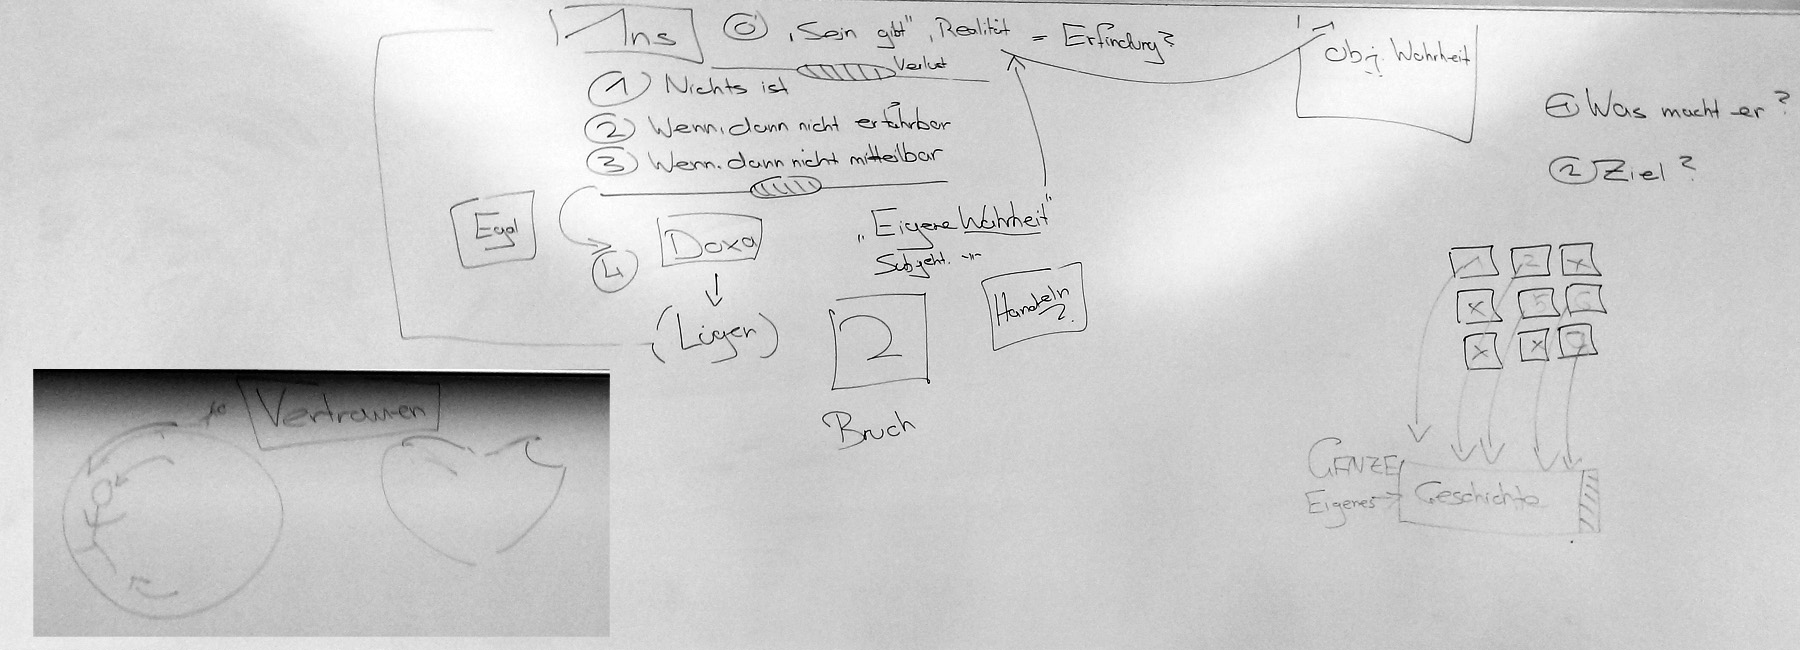 1 Ins
⓪ „Sein gibt", Realität = Erfindung?
Verlust
① Nichts ist
② Wenn, dann nicht erfahrbar
③ Wenn, dann nicht mitteilbar
Obj. Wahrheit
① Was macht er?
② Ziel?
Egal
④ Doxa
(Lügen)
„Eigene Wahrheit"
Subjekt. -"-
Handeln?
2
Bruch
Vertrauen
1 2 x
x 5 6
x x 9
GANZE
Eigenes → Geschichte